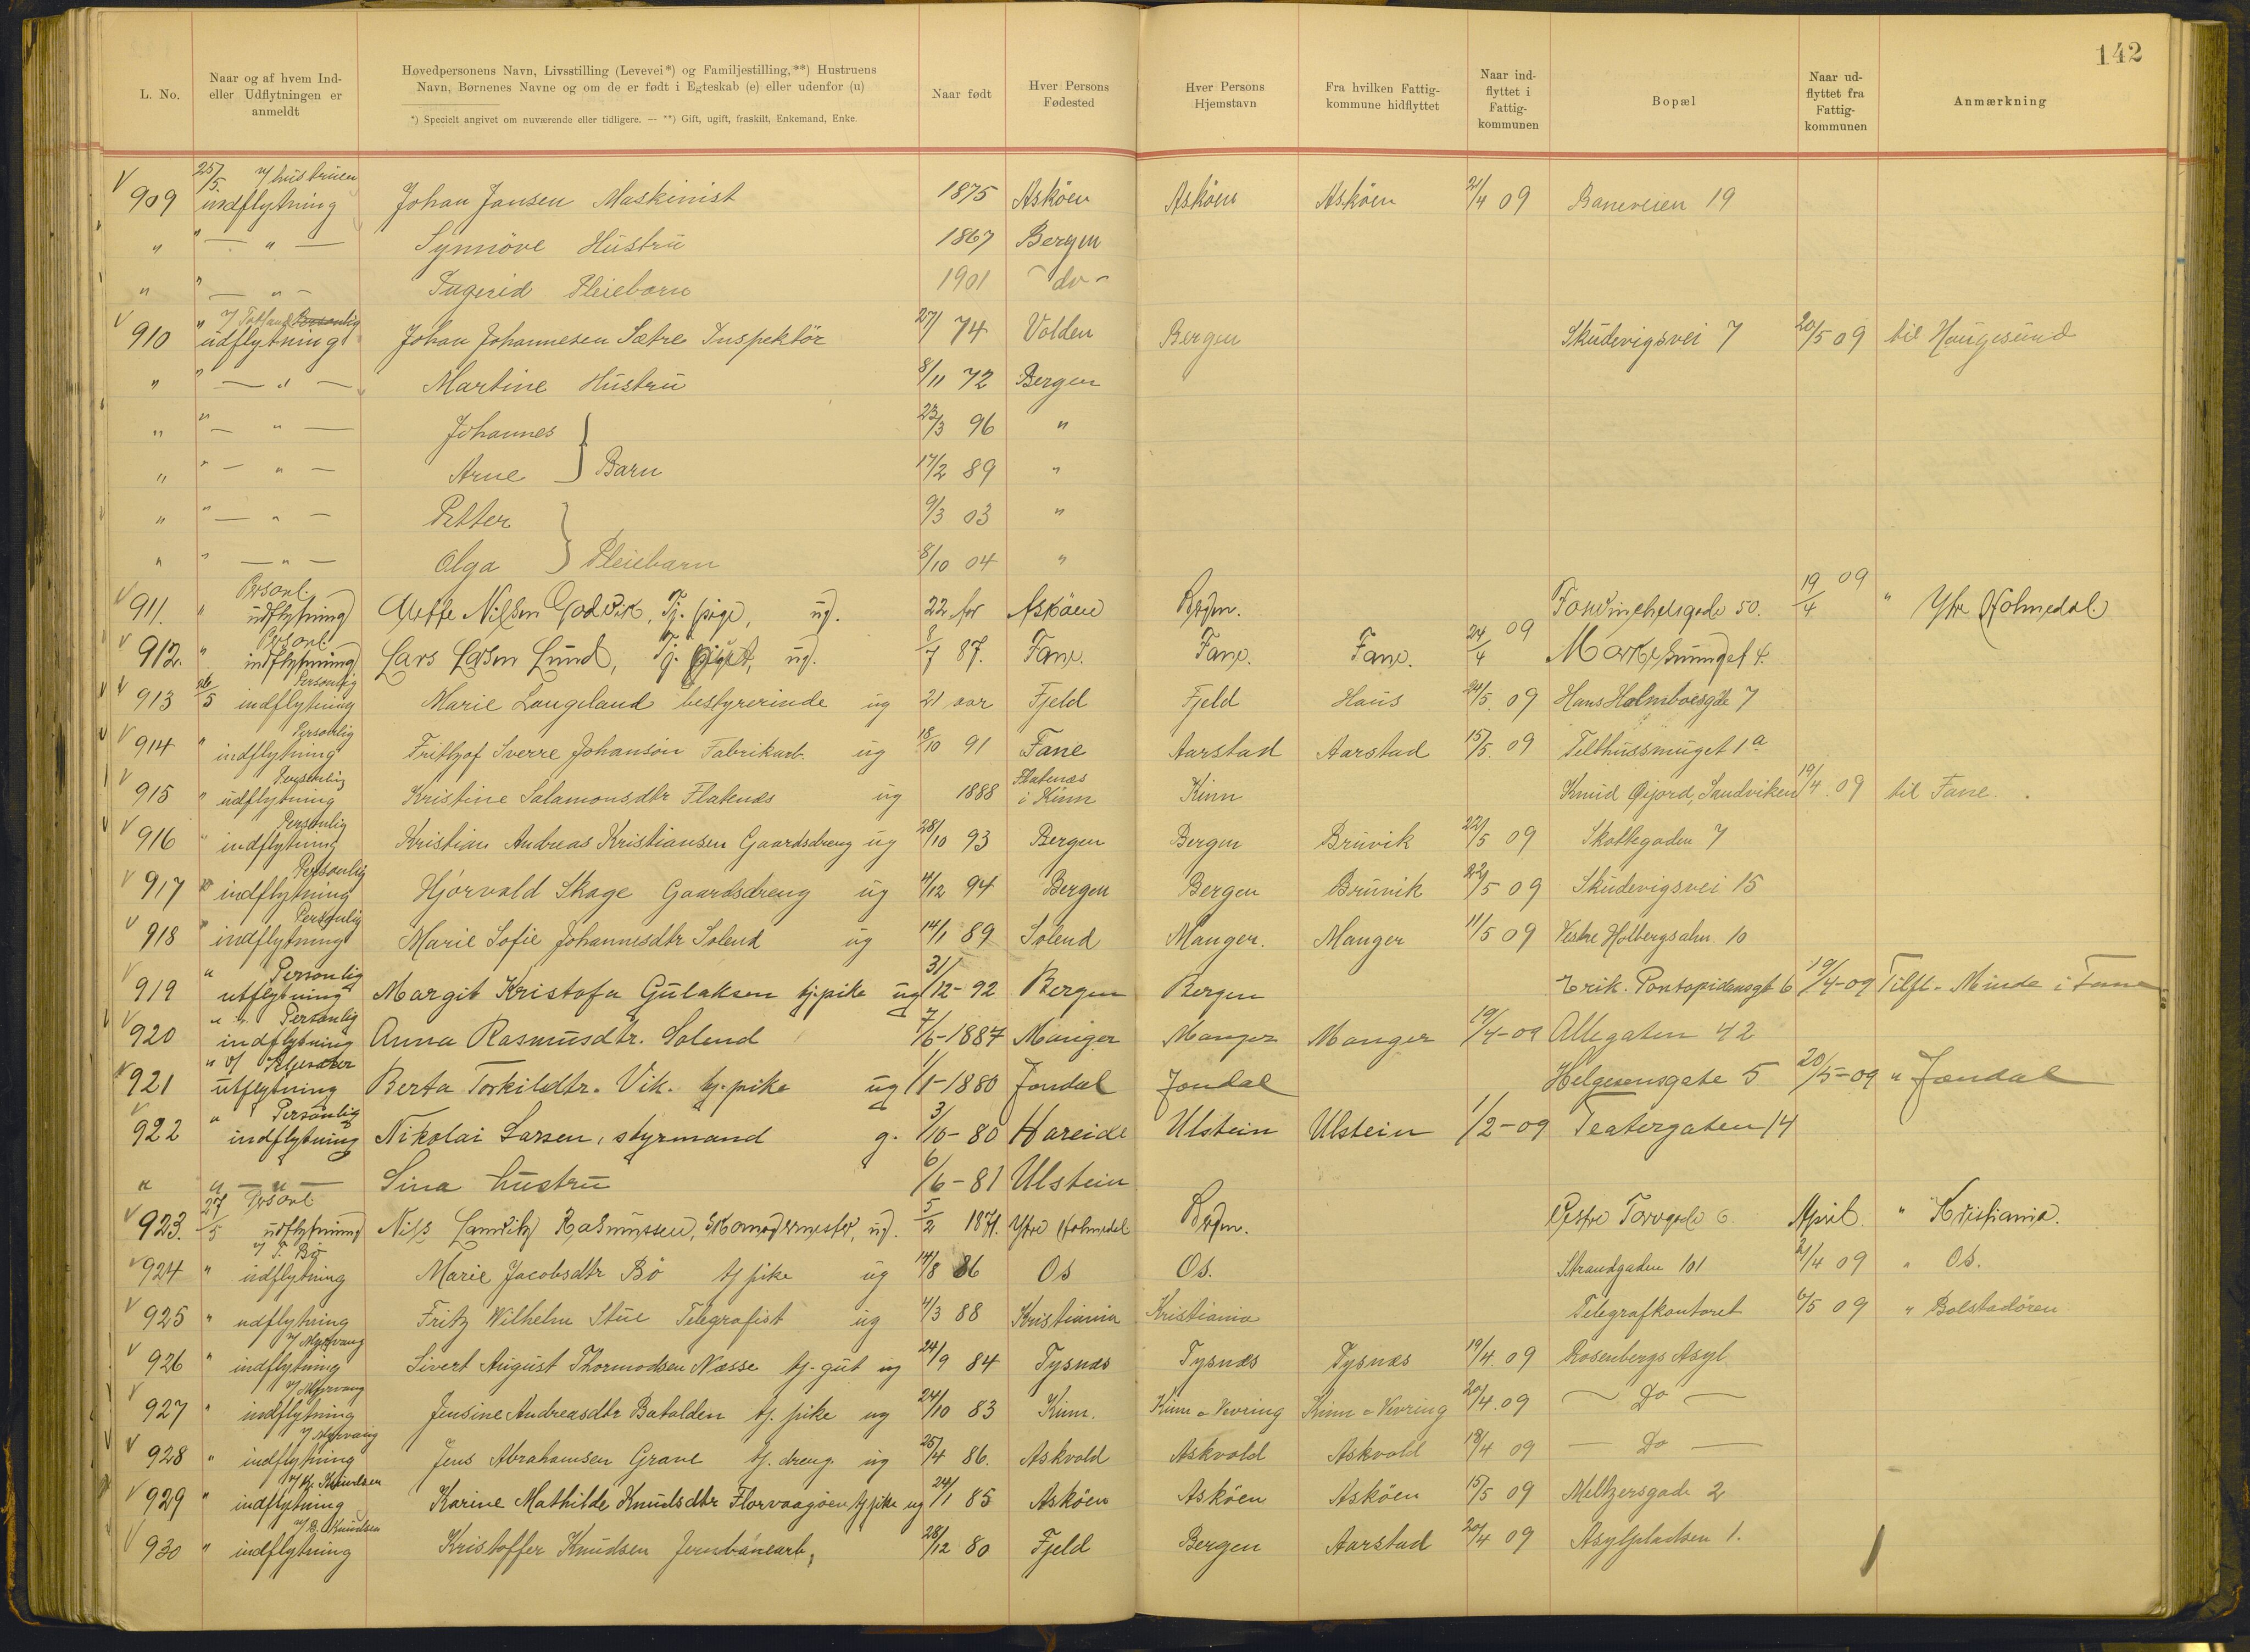 142
L. No.
Naar og af hvem Ind- eller Udflytningen er anmeldt
Hovedpersonens Navn, Livsstilling (Levevei*) og Familjestilling,**) Hustruens Navn, Børnenes Navne og om de er født i Egteskab (e) eller udenfor (u)
*) Specielt angivet om nuværende eller tidligere. — **) Gift, ugift, fraskilt, Enkemand, Enke.
Naar født
Hver Persons Fødested
Hver Persons Hjemstavn
Fra hvilken Fattigkommune hidflyttet
Naar indflyttet i Fattigkommunen
Bopæl
Naar udflyttet fra Fattigkommunen
Anmærkning
909 25/5. v/ hustruen indflytning Johan Jansen Maskinist 1875 Asköen Asköen Asköen 21/4 09 Baneveien 19
" " — " — Synnöve Hustru 1867 Bergen
" " — " — Ingerid Pleiebarn 1901 - do -
910 " udflytning Johan Johannesen Sætre Inspektör 27/ 74 Volden Bergen Skudevigsvei 7 20/5 09 til Haugesund
" " — " — Martine Hustru 8/11 72 Bergen
" " — " — Johannes } Barn 23/3 96 "
" " — " — Arne 17/2 89 "
" " — " — Petter } Pleiebarn 9/3 03 "
" " — " — Olga 8/10 04 "
911. " Personl. udflytning Nilsen Godvik, Tj. pige, ug. 22 år Askøen Bergen. 50. 19/4 09 " Ytre Holmedal
912. " Personl. indflytning Lars Larsen Lund, Tj. ug. 8/7 87. Fane. Fane. Fane. 24/4 09 4.
913 26/5 Personlig indflytning Marie Langeland bestyrerinde ug 21 aar Fjeld Fjeld Haus 24/5. 09 Hans Holmboesgde 7
914 " Personlig indflytning Frithjof Sverre Johanson Fabrikarb. ug 18/10 91 Fane Aarstad Aarstad 15/5. 09 Telthussmuget 1a
915 " Personlig udflytning Kristine Salamonsdtr Flatenæs ug 1888 Flatenæs i Kinn Kinn Knud Øijord, Sandviken 19/4. 09 til Fane.
916 " Personlig indflytning Kristian Andreas Kristiansen Gaardsdreng ug 28/10 93 Bergen Bergen Bruvik 22/5 09 Skottegaden 7
917 " Personlig indflytning Hjörvald Skage Gaardsdreng ug 4/12 94 Bergen Bergen Bruvik 22/5 09 Skudevigsvei 15
918 " Personlig indflytning Marie Sofie Johannesdtr Solend ug 14/1 89 Solend Manger. Manger 11/5 09 Vestre Holbergsalm. 10
919 " Personlig utflytning Margit Kristofa Gulaksen tj. pike ug 31/12-92 Bergen Bergen Erik. Pontopidansgt 6 19/4-09 Tilfl. Minde i Fane
920 " Personlig indflytning Anna Rasmusdtr. Solend 7/6-1887 Manger Manger Manger 19/4-09 Allegaten 42
921 " utflytning Berta Torkildtr. Vik. tj. pike ug 1/1-1880 Jondal Jondal Helgesensgate 5 20/5-09 " Jondal
922 " Personlig indflytning Nikolai Larsen, styrmand g. 3/10-80 Hareide Ulstein Ulstein 1/2-09 Teatergaten 14
" " — " — Sina hustru 6/6-81 Ulstein
923. 27/5 Personl. udflytning Nils Lauritz Rasmussen, Skomagermester, ug. 5/2 1871. Ytre Holmedal Bergen. Vestre Torvgade 6. April " Kristiania.
924 " v/ T. Bö indflytning Marie Jacobsdtr Bö tj pike ug 14/8 86 Os Os. Strandgaden 101 21/4 09 " Os.
925 " udflytning Fritz Wilhelm Stue Telegrafist ug 4/3 88 Kristiania Kristiania Telegrafkontoret 6/5 09 " Bolstadören
926 " v/ Myrvang indflytning Sivert August Thormodsen Næsse tj. gut ug 24/9 84 Tysnæs Tysnæs Tysnæs 19/4. 09 Rosenbergs Asyl
927 " v/ Myrvang indflytning Jensine Andreasdtr Batalden tj. pike ug 24/10 83 Kinn. Kinn o Vevring Kinn o Vevring 20/4. 09 — Do —
928 " v/ Myrvang indflytning Jens Abrahamsen Grane tj. dreng. ug 25/4 86. Askvold Askvold Askvold 18/4 09 — Do —
929 " v/ Kr. Knudsen indflytning Karine Mathilde Knudsdtr Florvaagöen tj pike ug 24/1 85 Asköen Asköen Asköen 15/5 09 Meltzersgade 2
930 " v/ B. Knudsen indflytning Kristoffer Knudsen Jernbanearb, 28/12 80 Fjeld Bergen Aarstad 20/4 09 Asylpladsen 1.